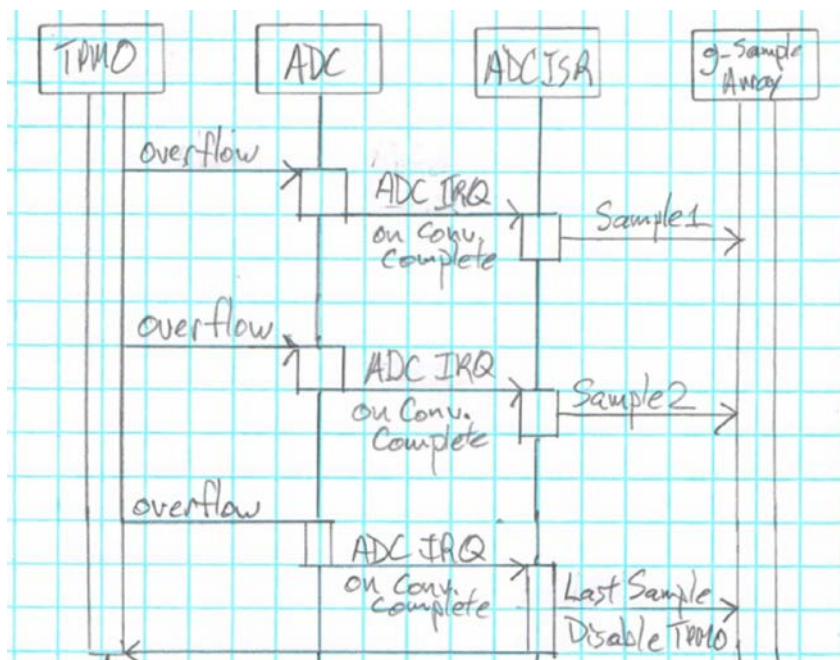 TPM0
ADC
ADC ISR
g-Sample
Array
overflow
ADC IRQ
on Conv.
Complete
Sample1
overflow
ADC IRQ
on Conv.
Complete
Sample2
overflow
ADC IRQ
on Conv.
Complete
Last Sample
Disable TPM0